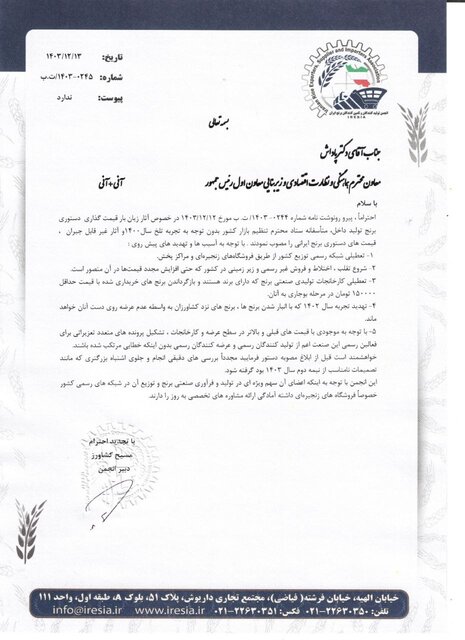 تاریخ: ۱۴۰۳/۱۲/۱۳
شماره: ۱۴۰۳-۰۲۴۵/ت.ب
پیوست: ندارد
Iranian Rice Exporters, Supplier and Importers Association
IRESIA
انجمن تولید کنندگان و تامین کنندگان برنج ایران
بسمه تعالی
جناب آقای دکتر پاداش
معاون محترم هماهنگی و نظارت اقتصادی و زیربنایی معاون اول رئیس جمهور
آنی+آنی
با سلام
احتراماً، پیرو رونوشت نامه شماره ۰۲۴۴-۱۴۰۳/ت. ب مورخ ۱۴۰۳/۱۲/۱۲ در خصوص آثار زیان بار قیمت گذاری دستوری
برنج تولید داخل، متأسفانه ستاد محترم تنظیم بازار کشور بدون توجه به تجربه تلخ سال۱۴۰۰و آثار غیر قابل جبران ،
قیمت های دستوری برنج ایرانی را مصوب نمودند . با توجه به آسیب ها و تهدید های پیش روی :
۱- تعطیلی شبکه رسمی توزیع کشور از طریق فروشگاه‌های زنجیره‌ای و مراکز پخش.
۲- شروع تقلب ، اختلاط و فروش غیر رسمی و زیر زمینی در کشور که حتی افزایش مجدد قیمت‌ها در آن متصور است.
۳- تعطیلی کارخانجات تولیدی صنعتی که دارای برند هستند و بازگرداندن برنج های خریداری شده با قیمت حداقل
۱۵۰۰۰۰۰ تومان در مرحله بوجاری به آنان.
۴- تهدید تجربه سال ۱۴۰۲ که با انبار شدن برنج ها ، برنج های نزد کشاورزان به واسطه عدم عرضه روی دست آنان خواهد
ماند.
۵- با توجه به موجودی با قیمت های قبلی و بالاتر در سطح عرضه و کارخانجات ، تشکیل پرونده های متعدد تعزیراتی برای
فعالین رسمی این صنعت اعم از تولید کنندگان رسمی و عرضه کنندگان رسمی بدون اینکه خطایی مرتکب شده باشند.
خواهشمند است قبل از ابلاغ مصوبه دستور فرمایید مجدداً بررسی های دقیقی انجام و جلوی اشتباه بزرگتری که مانند
تصمیمات نامناسب از نیمه دوم سال ۱۴۰۳ بود گرفته شود.
این انجمن با توجه به اینکه اعضای آن سهم ویژه ای در تولید و فرآوری صنعتی برنج و توزیع آن در شبکه های رسمی کشور
خصوصاً فروشگاه های زنجیره‌ای داشته آمادگی ارائه مشاوره های تخصصی به روز را دارند.
با تجدید احترام
مسیح کشاورز
دبیر انجمن
خیابان الهیه، خیابان فرشته( فیاضی)، مجتمع تجاری داریوش، پلاک ۵۱، بلوک A، طبقه اول، واحد ۱۱۱
تلفن: ۲۲۶۳۰۳۵۰-۰۲۱ فکس: ۲۲۶۳۰۳۵۱-۰۲۱ www.iresia.ir info@iresia.ir